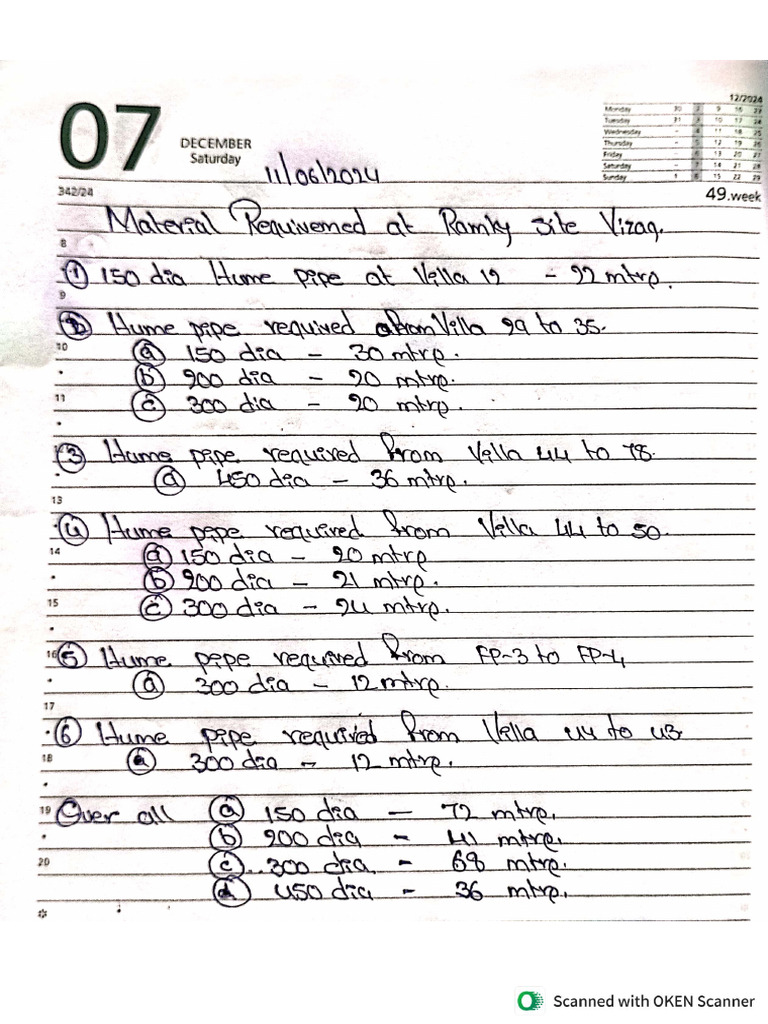 12/2024
07 DECEMBER Saturday
Monday 30 2 9 16 23
Tuesday 31 3 10 17 24
Wednesday - 4 11 18 25
Thursday - 5 12 19 26
Friday - 6 13 20 27
Saturday - 7 14 21 28
Sunday 1 8 15 22 29
11/06/2024
342/24
49.week
Material Requiremed at Ramky site Vizag.
8
① 150 dia Hume pipe at Villa 12 - 22 mtrp.
9
② Hume pipe required from Villa 29 to 35.
10 ⓐ 150 dia - 30 mtrp.
ⓑ 200 dia - 20 mtrp.
11 ⓒ 300 dia - 20 mtrp.
③ Hume pipe required from Villa 44 to 78.
ⓐ 450 dia - 36 mtrp.
13
④ Hume pipe required from Villa 44 to 50.
14 ⓐ 150 dia - 20 mtrp
ⓑ 200 dia - 21 mtrp.
15 ⓒ 300 dia - 24 mtrp.
16 ⑤ Hume pipe required from FP-3 to FP-4
ⓐ 300 dia - 12 mtrp.
17
⑥ Hume pipe required from Villa 44 to 43
18 ⓐ 300 dia - 12 mtrp.
19 Over all ⓐ 150 dia - 72 mtrp.
ⓑ 200 dia - 41 mtrp.
20 ⓒ 300 dia - 68 mtrp.
ⓓ 450 dia - 36 mtrp.
Scanned with OKEN Scanner